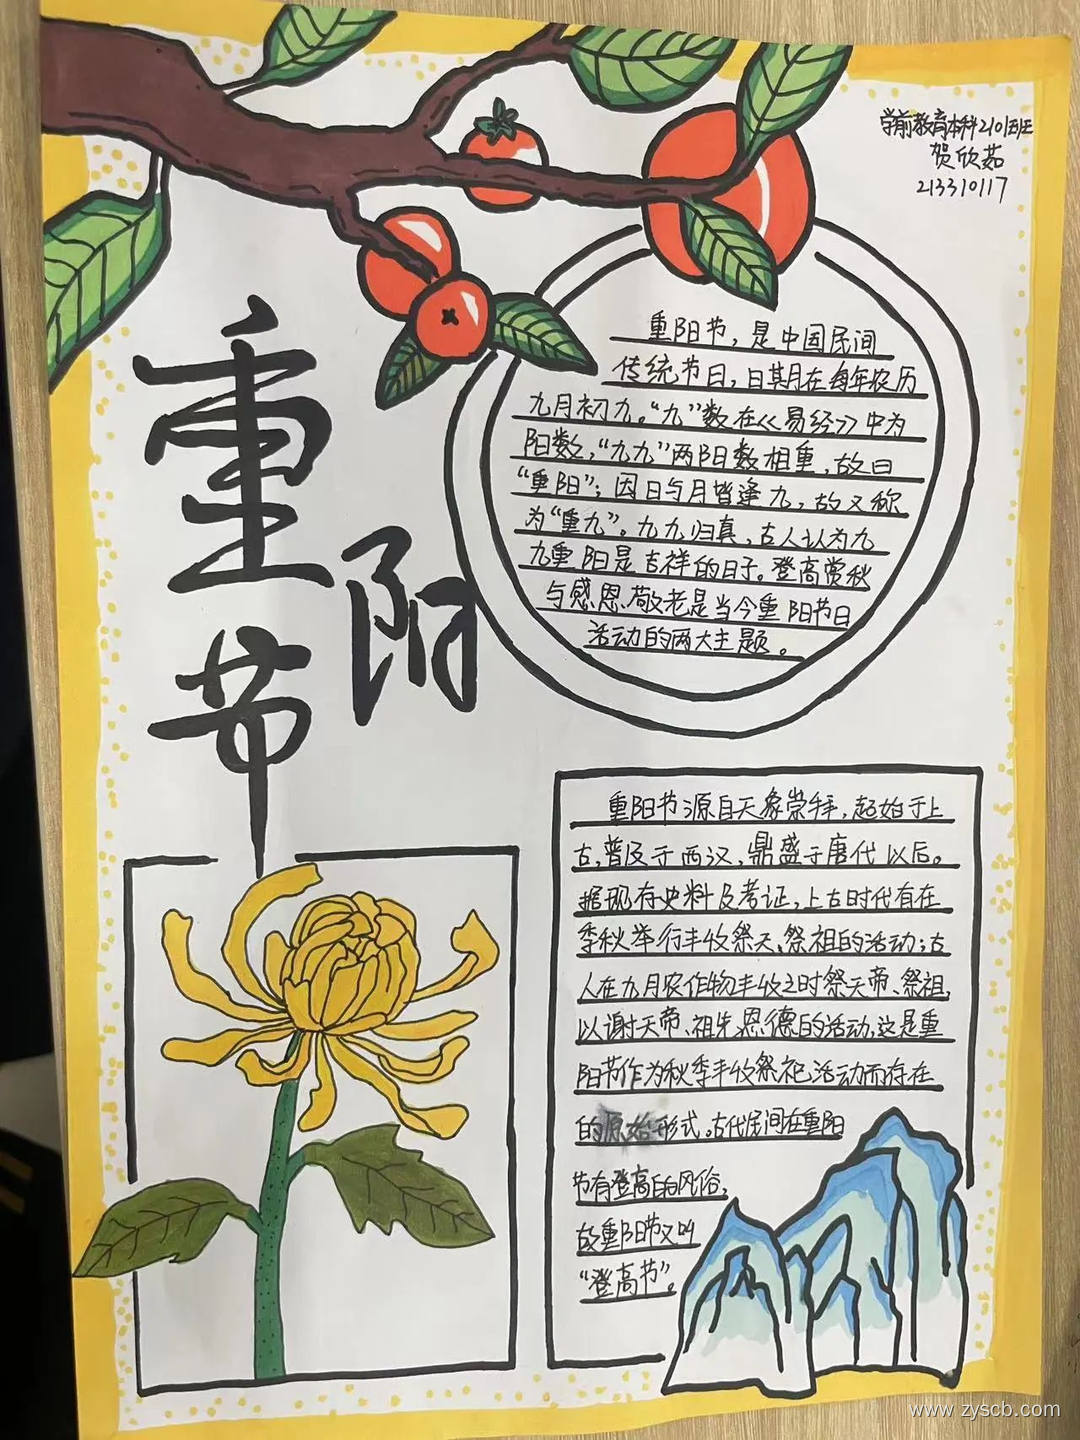 学前教育本科2101班
贺欣茹
213310117
重阳节
重阳节，是中国民间
传统节日，日期月在每年农历
九月初九。“九”数在《易经》中为
阳数，“九九”两阳数相重，故曰
“重阳”；因日与月皆逢九，故又称
为“重九”。九九归真，古人认为九
九重阳是吉祥的日子。登高赏秋
与感恩、敬老是当今重阳节日
活动的两大主题。
重阳节源自天象崇拜，起始于上
古，普及于西汉，鼎盛于唐代以后。
据现存史料及考证，上古时代有在
季秋举行丰收祭天、祭祖的活动；古
人在九月农作物丰收之时祭天帝、祭祖，
以谢天帝、祖先恩德的活动，这是重
阳节作为秋季丰收祭祀活动而存在
的原始形式。古代民间在重阳
节有登高的风俗，
故重阳节又叫
“登高节”。
www.zyscb.com